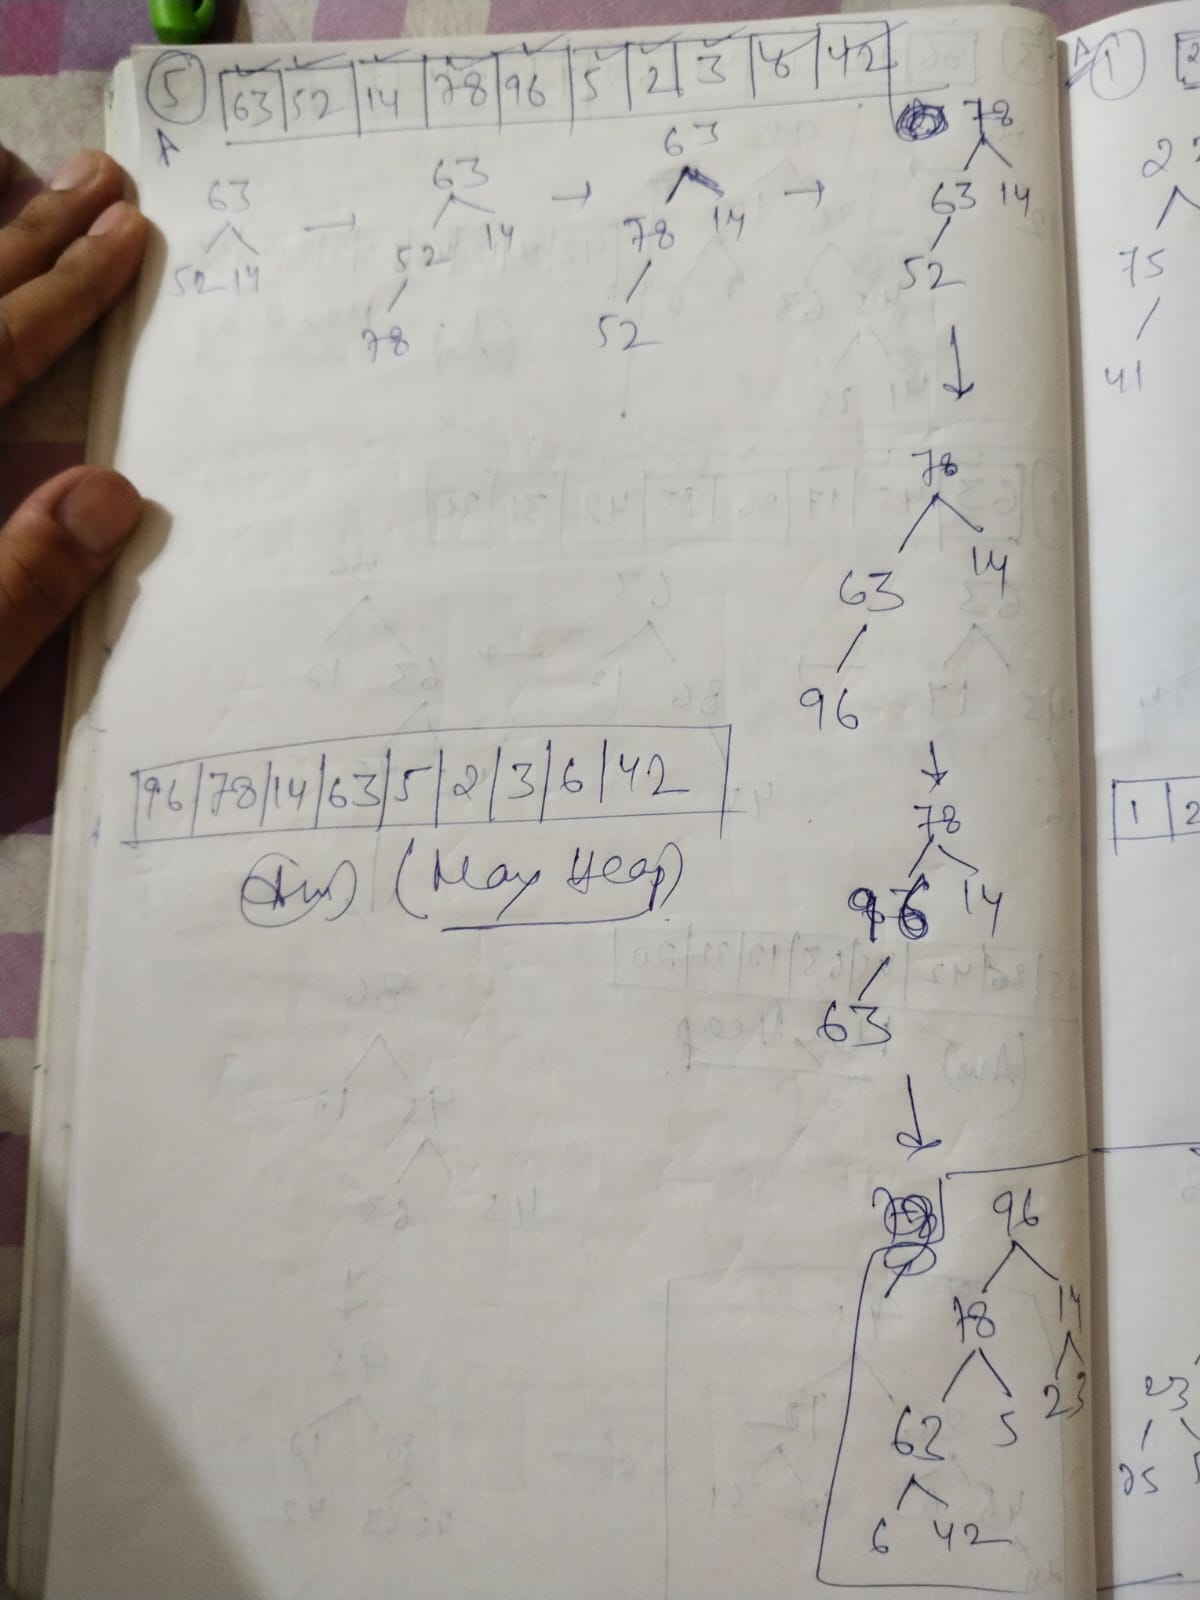 5 63 52 14 78 96 5 2 3 42
A
63
52 14
63
52 14
78
63
78 14
52
78
63 14
52
78
63 14
96
78
96 14
63
96
78 14
63 5 2 3
6 42
96 78 14 63 5 2 3 6 42
Ans) (Max Heap)
1
75
41
1 2
23